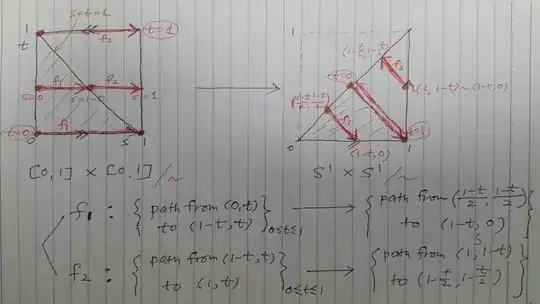 s+t=1
1
t
f₂
t=1
f₁
f₂
s=0
s=1-t
s=1
t=0
f₁
0
s
1
[0,1] × [0,1] /~
1
f₂
(1, 1-t) ~ (1-t, 0)
t=0
(1-t/2, 1-t/2)
f₁
t=1
0
(1-t, 0)
1
S¹ × S¹
f₁ : { path from (0,t) to (1-t,t) }0≤t≤1 → { path from (1-t/2, 1-t/2) to (1-t, 0) }
f₂ : { path from (1-t,t) to (1,t) }0≤t≤1 → { path from (1, 1-t) to (1-t/2, 1-t/2) }